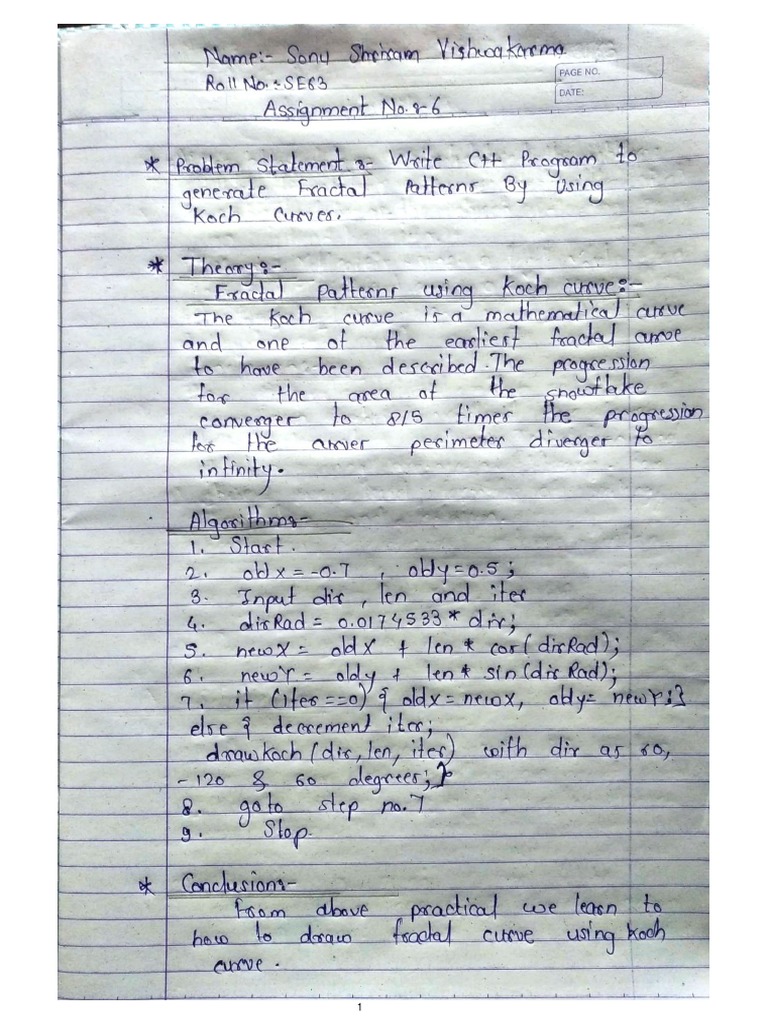 Name:- Sonu Shriram Vishwakarma
PAGE NO.
Roll No.:- SE63
DATE:
Assignment No.:- 6
* Problem Statement :- Write C++ Program to
generate Fractal Patterns By Using
Koch Curves.
* Theory:-
Fractal patterns using Koch curve:-
The Koch curve is a mathematical curve
and one of the earliest fractal curve
to have been described. The progression
for the area of the snowflake
converges to 8/5 times the progression
for the curver perimeter diverges to
infinity.
Algorithm:-
1. Start.
2. oldx = -0.7 , oldy = 0.5;
3. Input dir, len and iter
4. dirRad = 0.0174533 * dir;
5. newX = oldX + len * cos(dirRad);
6. newY = oldy + len * sin(dirRad);
7. if (iter==0) { oldx = newx, oldy = newY;}
else { decrement iter;
drawkoch (dir, len, iter) with dir as 60,
-120 & 60 degrees;}
8. goto step no.7
9. Stop.
* Conclusion:-
From above practical we learn to
how to draw fractal curve using koch
curve.
1